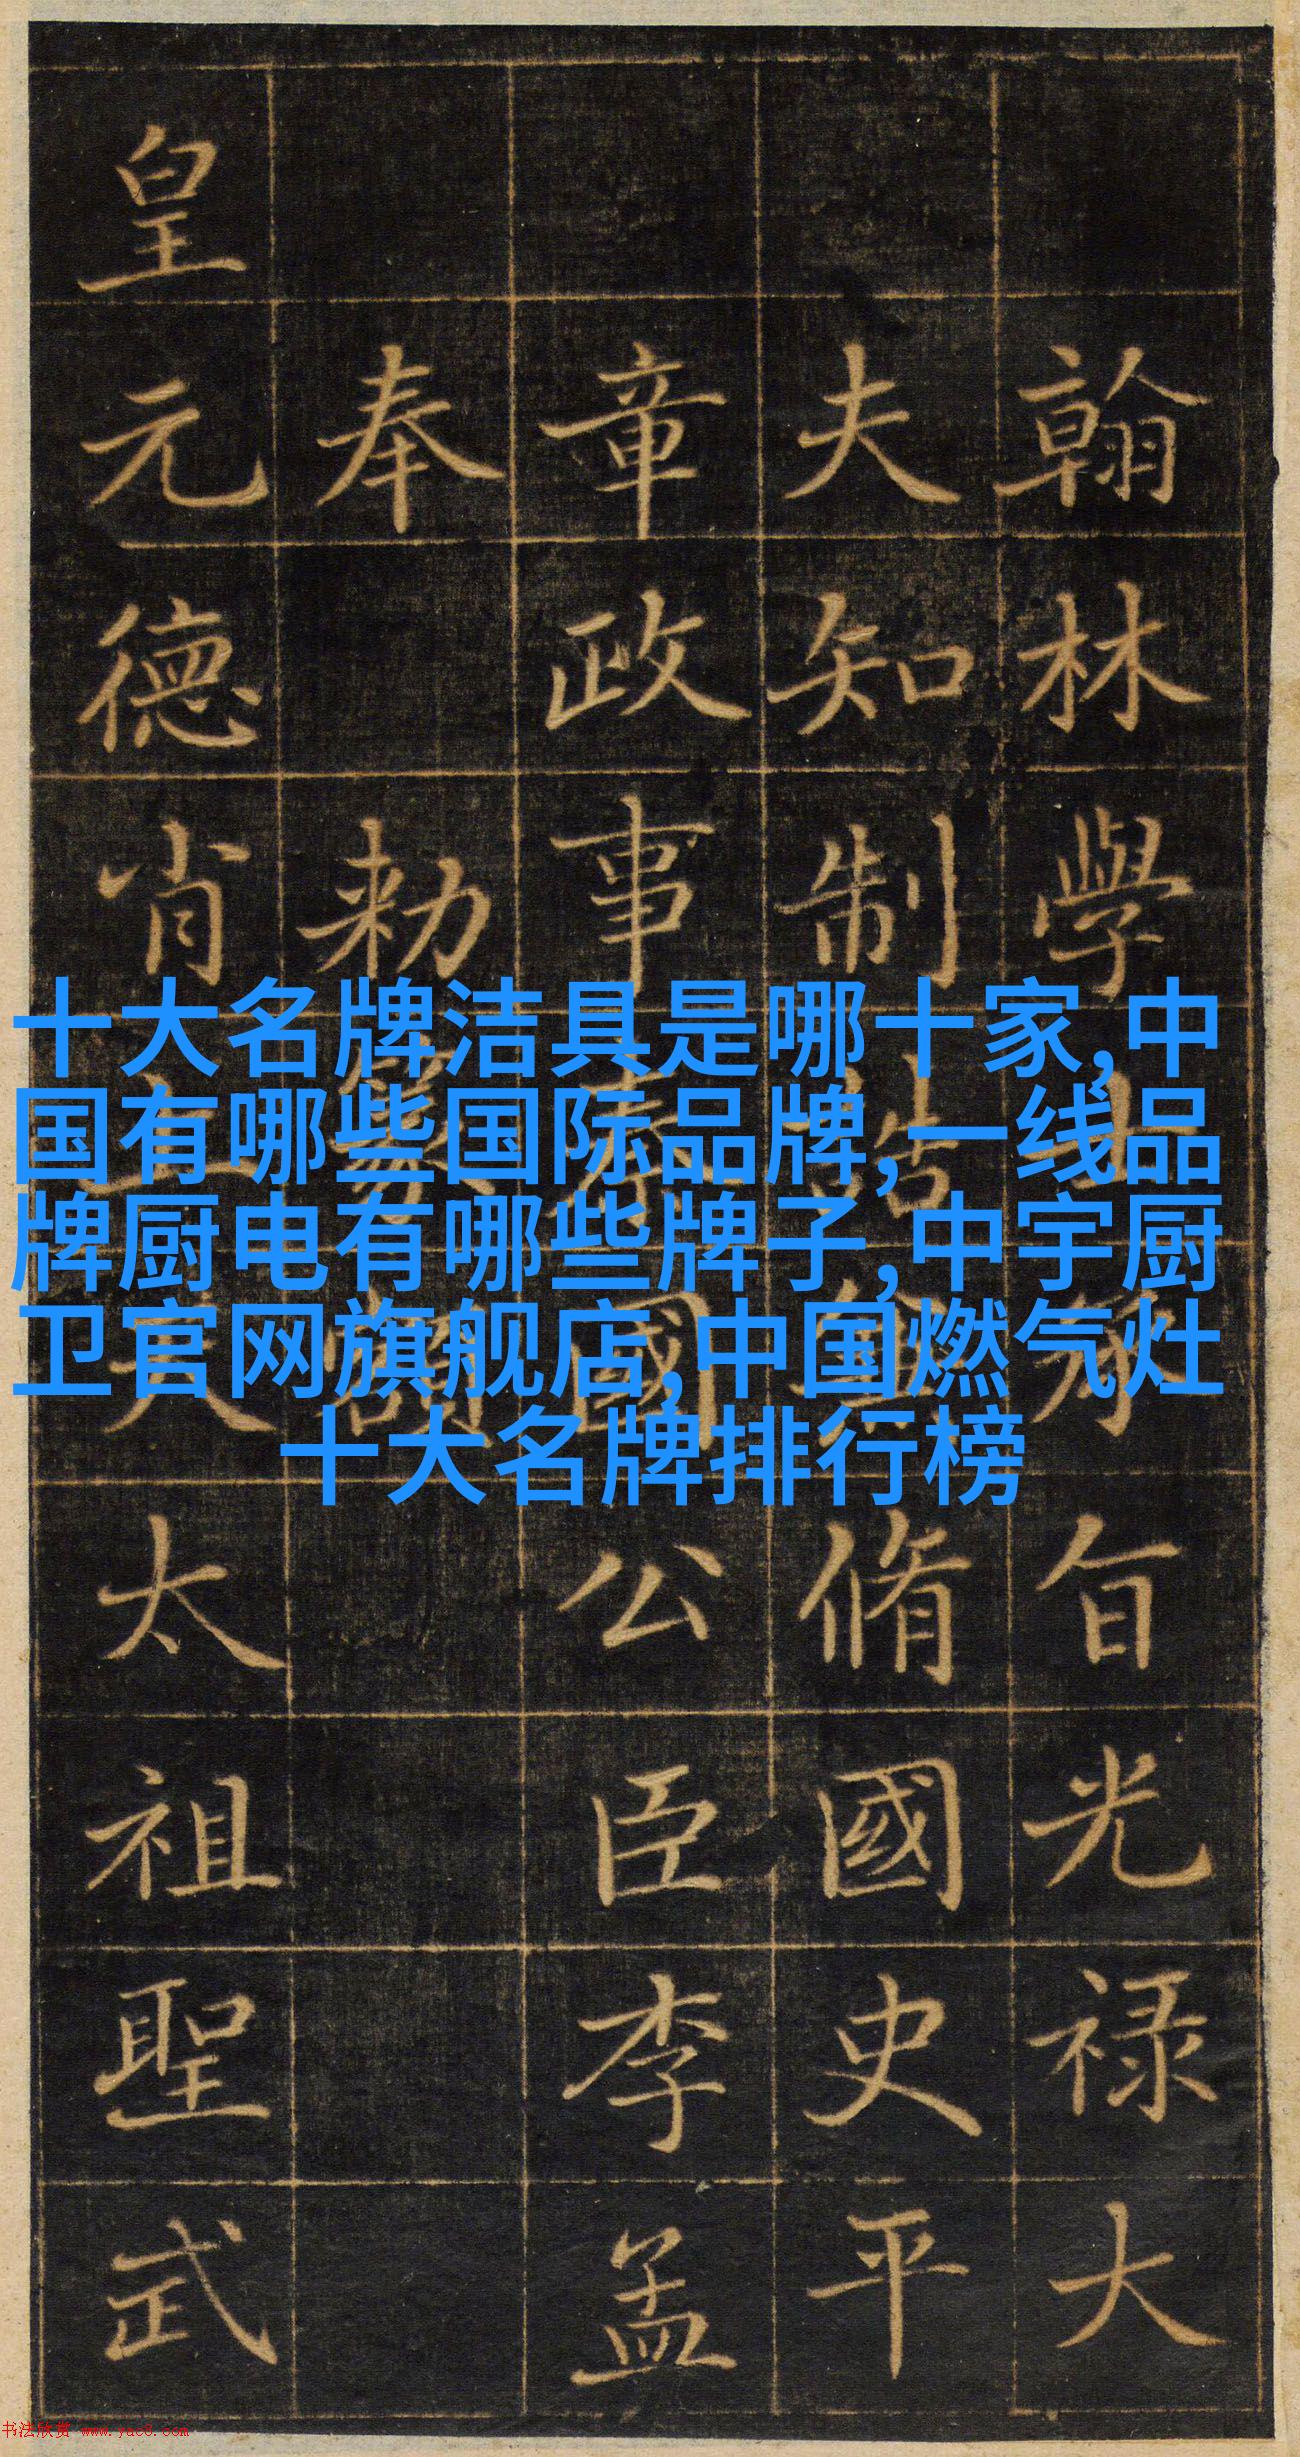 翰林學士承旨光祿大
夫知制誥兼脩國史平
章政事秦國公臣李孟
奉勅篆額
皇元德肖上天太祖聖武
十大名牌洁具是哪十家,中
国有哪些国际品牌,一线品
牌厨电有哪些牌子,中宇厨
卫官网旗舰店,中国燃气灶
十大名牌排行榜
书法欣赏 www.yac8.com